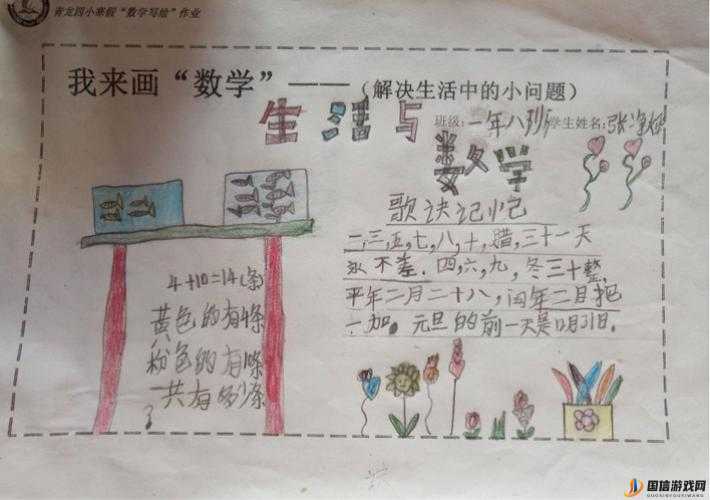 青龙四小寒假“数学写绘”作业
我来画“数学”——（解决生活中的小问题）
生活与
数学
班级：一年八班 学生姓名：张
歌诀记忆
一,三,五,七,八,十,腊,三十一天
永不差.四,六,九,冬三十整,
平年二月二十八,闰年二月把
一加。元旦的前一天是12月31日.
4+10=14(条)
黄色的有4条
粉色的有10条
一共有多少条
?
国信游戏网